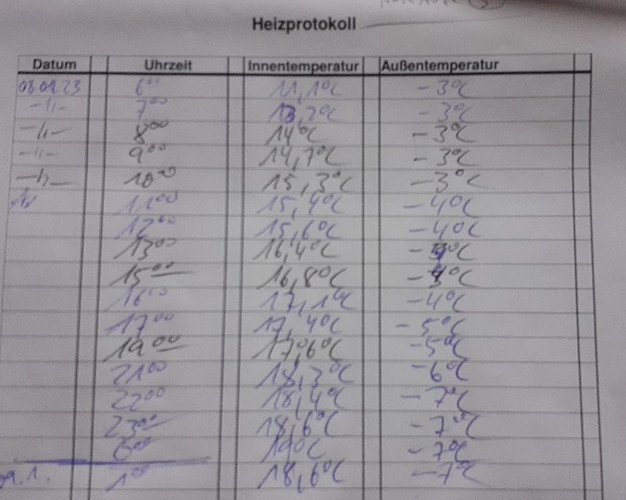 Heizprotokoll
Datum Uhrzeit Innentemperatur Außentemperatur
6⁰⁰ 11,1°C -3°C
-"- 7⁰⁰ 13,2°C -3°C
-"- 8⁰⁰ 14°C -3°C
-"- 9⁰⁰ 14,7°C -3°C
-"- 10⁰⁰ 15,3°C -3°C
11⁰⁰ 15,4°C -4°C
12⁰⁰ 15,6°C -4°C
13⁰⁰ 16,4°C
15⁰⁰ 16,8°C
16⁰⁰ 17,1°C -4°C
17⁰⁰ 17,4°C -5°C
19⁰⁰ 17,6°C -5°C
21⁰⁰ 18,3°C -6°C
22⁰⁰ 18,4°C -7°C
23⁰⁰ 18,6°C -7°C
19°C -7°C
1⁰⁰ 18,6°C -7°C